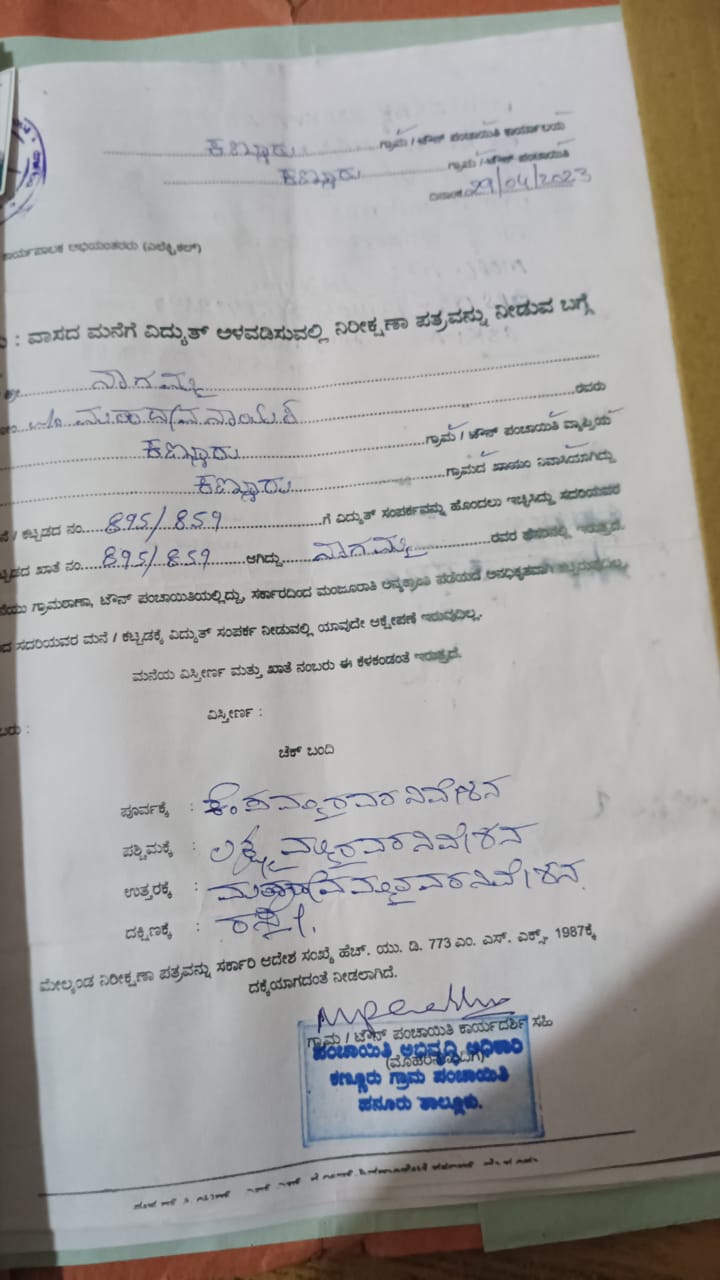 ಕಣ್ಣೂರು ಗ್ರಾಮ / ಟೌನ್ ಪಂಚಾಯಿತಿ ಕಾರ್ಯಾಲಯ
ಕಣ್ಣೂರು ಗ್ರಾಮ / ಟೌನ್ ಪಂಚಾಯಿತಿ
ದಿನಾಂಕ: 29/04/2023
ಕಾರ್ಯಪಾಲಕ ಅಭಿಯಂತರರು (ಎಲೆಕ್ಟ್ರಿಕಲ್)
: ವಾಸದ ಮನೆಗೆ ವಿದ್ಯುತ್ ಅಳವಡಿಸುವಲ್ಲಿ ನಿರೀಕ್ಷಣಾ ಪತ್ರವನ್ನು ನೀಡುವ ಬಗ್ಗೆ
ನಾಗಮ್ಮ
ರವರು
ಕಣ್ಣೂರು ಗ್ರಾಮ / ಟೌನ್ ಪಂಚಾಯಿತಿ ವ್ಯಾಪ್ತಿಯ
ಕಣ್ಣೂರು ಗ್ರಾಮದ ಖಾಯಂ ನಿವಾಸಿಯಾಗಿದ್ದು
/ ಕಟ್ಟಡದ ನಂ. 895/859 ಗೆ ವಿದ್ಯುತ್ ಸಂಪರ್ಕವನ್ನು ಹೊಂದಲು ಇಚ್ಛಿಸಿದ್ದು ಸದರಿಯವರ
ಖಾತೆ ನಂ. 895/859 ಆಗಿದ್ದು ನಾಗಮ್ಮ ರವರ ಹೆಸರಿನಲ್ಲಿ ಇರುತ್ತದೆ.
ಗ್ರಾಮಠಾಣಾ, ಟೌನ್ ಪಂಚಾಯಿತಿಯಲ್ಲಿದ್ದು, ಸರ್ಕಾರದಿಂದ ಮಂಜೂರಾತಿ ಪಡೆಯದೆ ಅನಧಿಕೃತವಾಗಿ
ಸದರಿಯವರ ಮನೆ / ಕಟ್ಟಡಕ್ಕೆ ವಿದ್ಯುತ್ ಸಂಪರ್ಕ ನೀಡುವಲ್ಲಿ ಯಾವುದೇ ಆಕ್ಷೇಪಣೆ ಇರುವುದಿಲ್ಲ.
ಮನೆಯ ವಿಸ್ತೀರ್ಣ ಮತ್ತು ಖಾತೆ ನಂಬರು ಈ ಕೆಳಕಂಡಂತೆ ಇರುತ್ತದೆ.
ವಿಸ್ತೀರ್ಣ :
ಚೆಕ್ ಬಂದಿ
ಪೂರ್ವಕ್ಕೆ : ನಿವೇಶನ
ಪಶ್ಚಿಮಕ್ಕೆ : ಲಕ್ಷ್ಮಮ್ಮರವರ ನಿವೇಶನ
ಉತ್ತರಕ್ಕೆ : ನಿವೇಶನ.
ದಕ್ಷಿಣಕ್ಕೆ : ರಸ್ತೆ.
ಮೇಲ್ಕಂಡ ನಿರೀಕ್ಷಣಾ ಪತ್ರವನ್ನು ಸರ್ಕಾರಿ ಆದೇಶ ಸಂಖ್ಯೆ ಹೆಚ್. ಯು. ಡಿ. 773 ಎಂ. ಎಸ್. ಎಕ್ಸ್. 1987ಕ್ಕೆ
ದಕ್ಕೆಯಾಗದಂತೆ ನೀಡಲಾಗಿದೆ.
ಗ್ರಾಮ / ಟೌನ್ ಪಂಚಾಯಿತಿ ಕಾರ್ಯದರ್ಶಿ ಸಹಿ
ಪಂಚಾಯಿತಿ ಅಭಿವೃದ್ಧಿ ಅಧಿಕಾರಿ
ಕಣ್ಣೂರು ಗ್ರಾಮ ಪಂಚಾಯಿತಿ
ಹನೂರು ತಾಲ್ಲೂಕು.